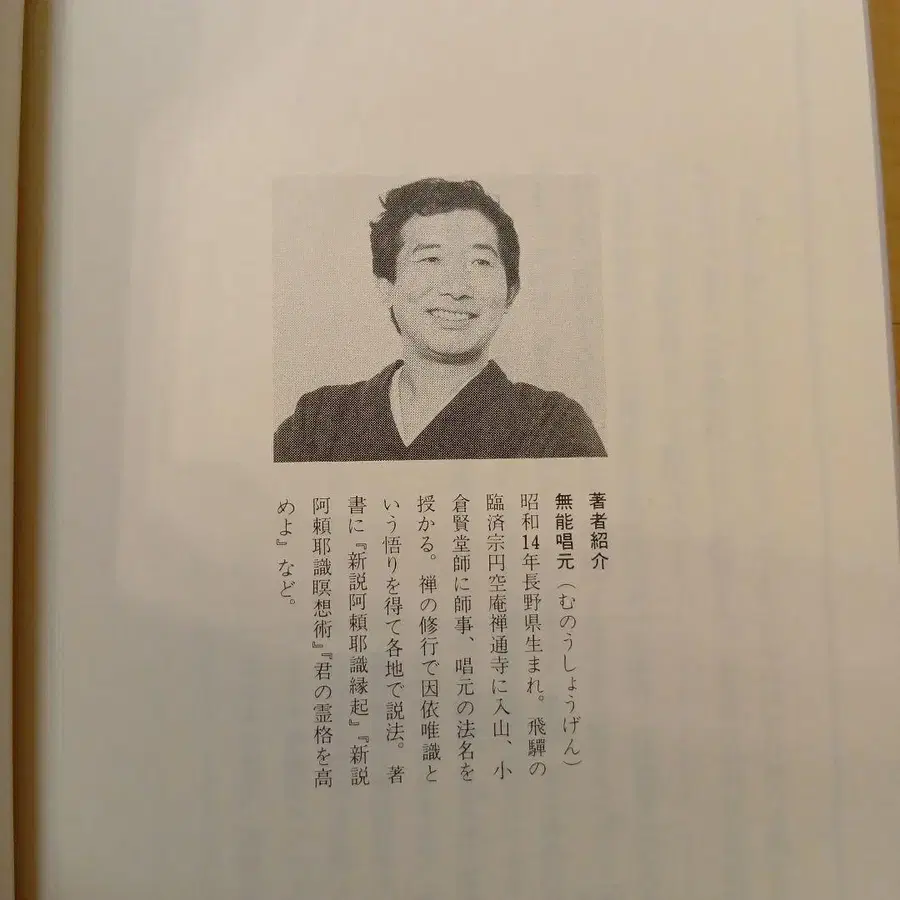 著者紹介
無能唱元（むのうしょうげん）
昭和14年長野県生まれ。飛驒の
臨済宗円空庵禅通寺に入山、小
倉賢堂師に師事、唱元の法名を
授かる。禅の修行で因依唯識と
いう悟りを得て各地で説法。著
書に『新説阿頼耶識縁起』『新説
阿頼耶識瞑想術』『君の霊格を高
めよ』など。